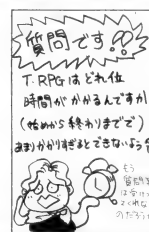 質問です!?
T.RPGはどれ位
時間がかかるんですか
(始めから終わりまでで)
あまりかかりすぎるとできないよう
もう
質問